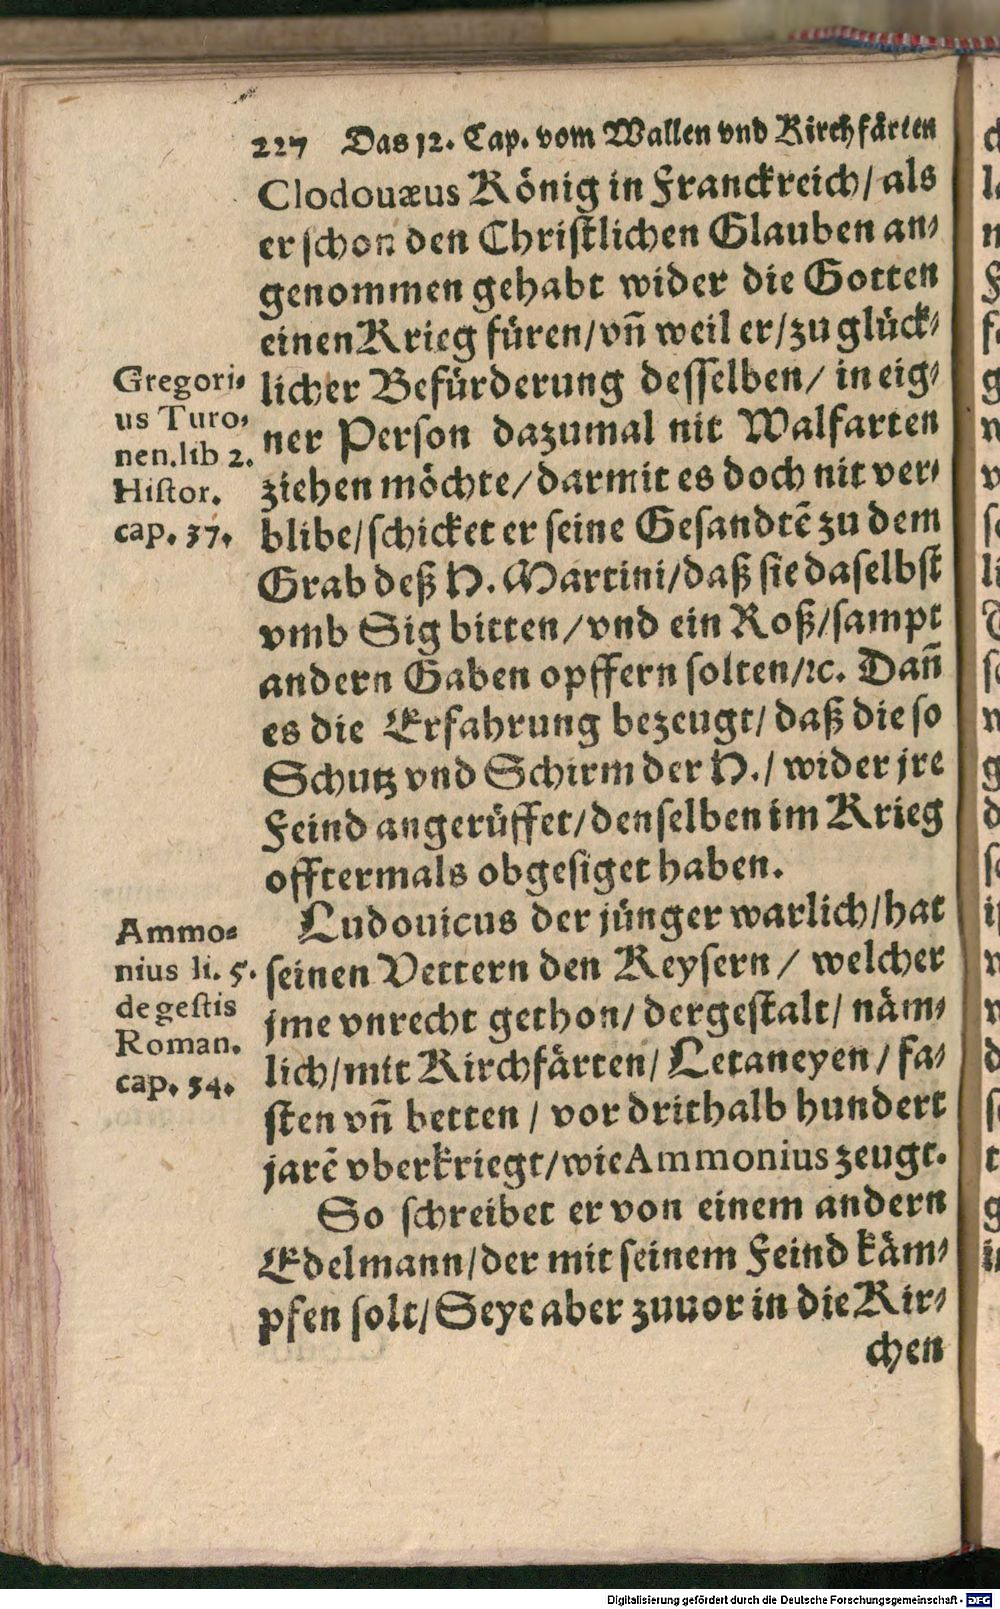 227 Das 12. Cap. vom Wallen vnd Kirchfärten
Clodouæus König in Franckreich/ als
er schon den Christlichen Glauben an⸗
genommen gehabt wider die Gotten
einen Krieg füren/vñ weil er/zu glück⸗
licher Befürderung desselben/ in eig⸗
ner Person dazumal nit Walfarten
ziehen möchte/darmit es doch nit ver⸗
blibe/schicket er seine Gesandtē zu dem
Grab deß H. Martini/daß sie daselbst
vmb Sig bitten/vnd ein Roß/sampt
andern Gaben opffern solten/ꝛc. Dañ
es die Erfahrung bezeugt/ daß die so
Schutz vnd Schirm der H./ wider jre
Feind angerüffet/denselben im Krieg
offtermals obgesiget haben.
Gregori⸗
us Turo⸗
nen.lib 2.
Histor.
cap. 37.
Ludouicus der jünger warlich/hat
seinen Vettern den Keysern/ welcher
jme vnrecht gethon/ dergestalt/ näm⸗
lich/mit Kirchfärten/ Letaneyen/ fa⸗
sten vñ betten/ vor drithalb hundert
jarē vberkriegt/wie Ammonius zeugt.
Ammo⸗
nius li. 5.
de gestis
Roman.
cap. 54.
So schreibet er von einem andern
Edelmann/der mit seinem Feind käm⸗
pfen solt/Seye aber zuuor in die Kir⸗
chen
Digitalisierung gefördert durch die Deutsche Forschungsgemeinschaft - DFG